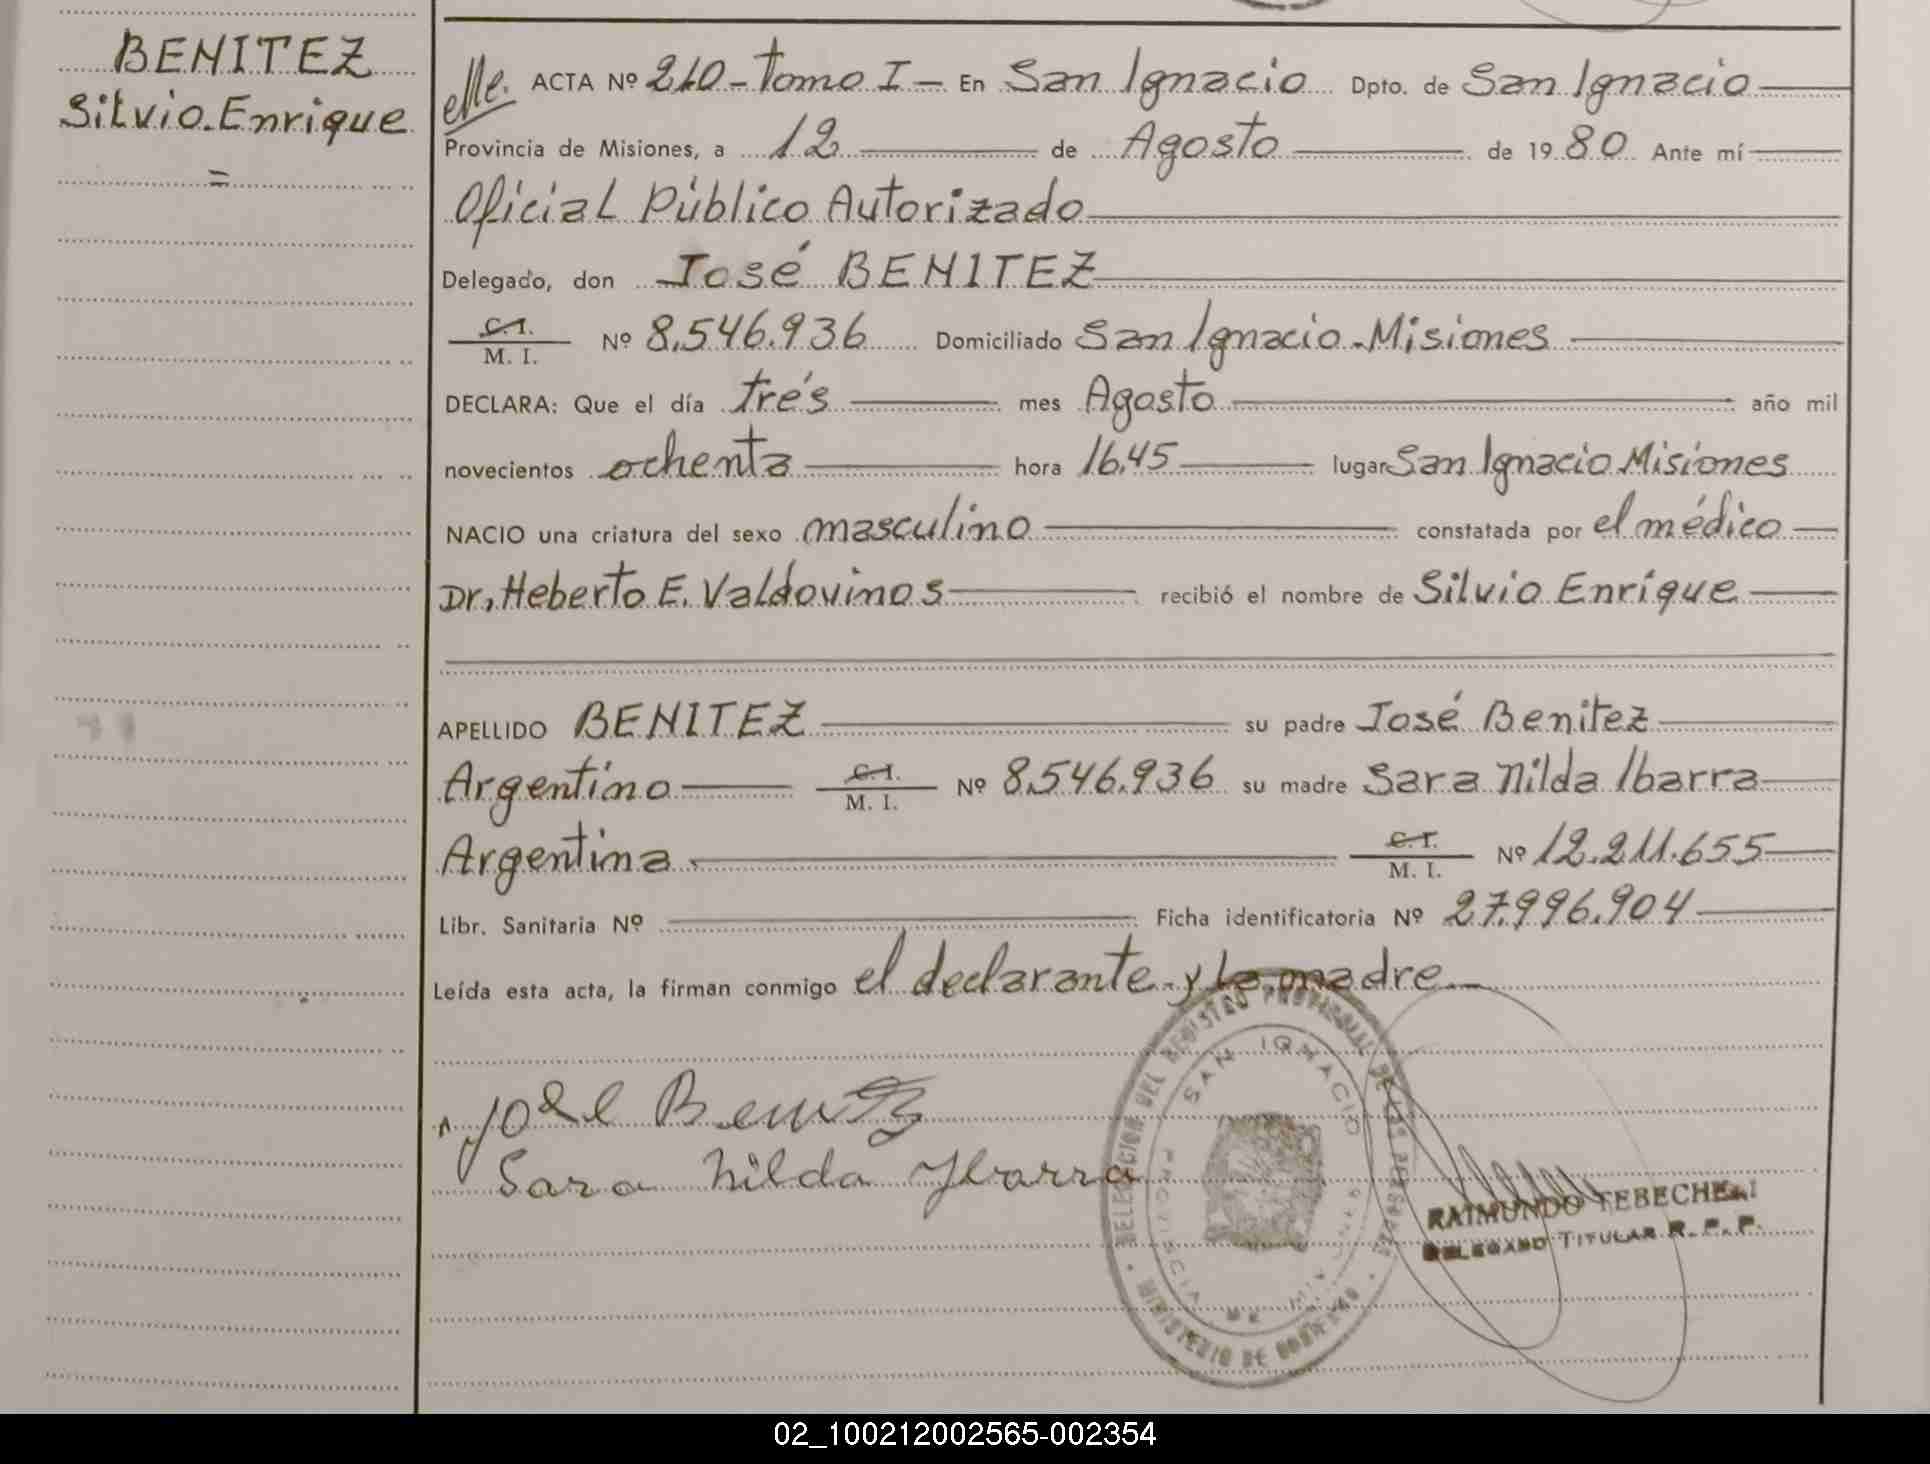 BENITEZ
Silvio Enrique
=
ACTA Nº 210 - Tomo I - En San Ignacio Dpto. de San Ignacio
Provincia de Misiones, a 12 de Agosto de 1980 Ante mí
Oficial Público Autorizado
Delegado, don José BENITEZ
C.I. / M. I. Nº 8.546.936 Domiciliado San Ignacio - Misiones
DECLARA: Que el día trés mes Agosto año mil
novecientos ochenta hora 16,45 lugar San Ignacio Misiones
NACIO una criatura del sexo masculino constatada por el médico
Dr, Heberto E. Valdovinos recibió el nombre de Silvio Enrique
APELLIDO BENITEZ su padre José Benitez
Argentino C.I. / M. I. Nº 8.546.936 su madre Sara Nilda Ibarra
Argentina C.I. / M. I. Nº 12.211.655
Libr. Sanitaria Nº Ficha identificatoria Nº 27.996.904
Leída esta acta, la firman conmigo el declarante y la madre
José Benitez
Sara Nilda Ybarra
DELEGACION DEL REGISTRO PROVINCIAL DE LAS PERSONAS
SAN IGNACIO
PROVINCIA DE MISIONES
MINISTERIO DE GOBIERNO
RAIMUNDO
DELEGADO TITULAR R. P. P.
02_100212002565-002354